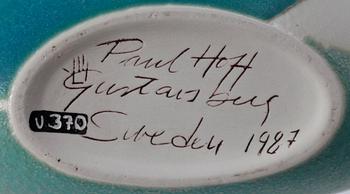 Paul Hoff
Gustavsberg
v.370
Sweden 1987